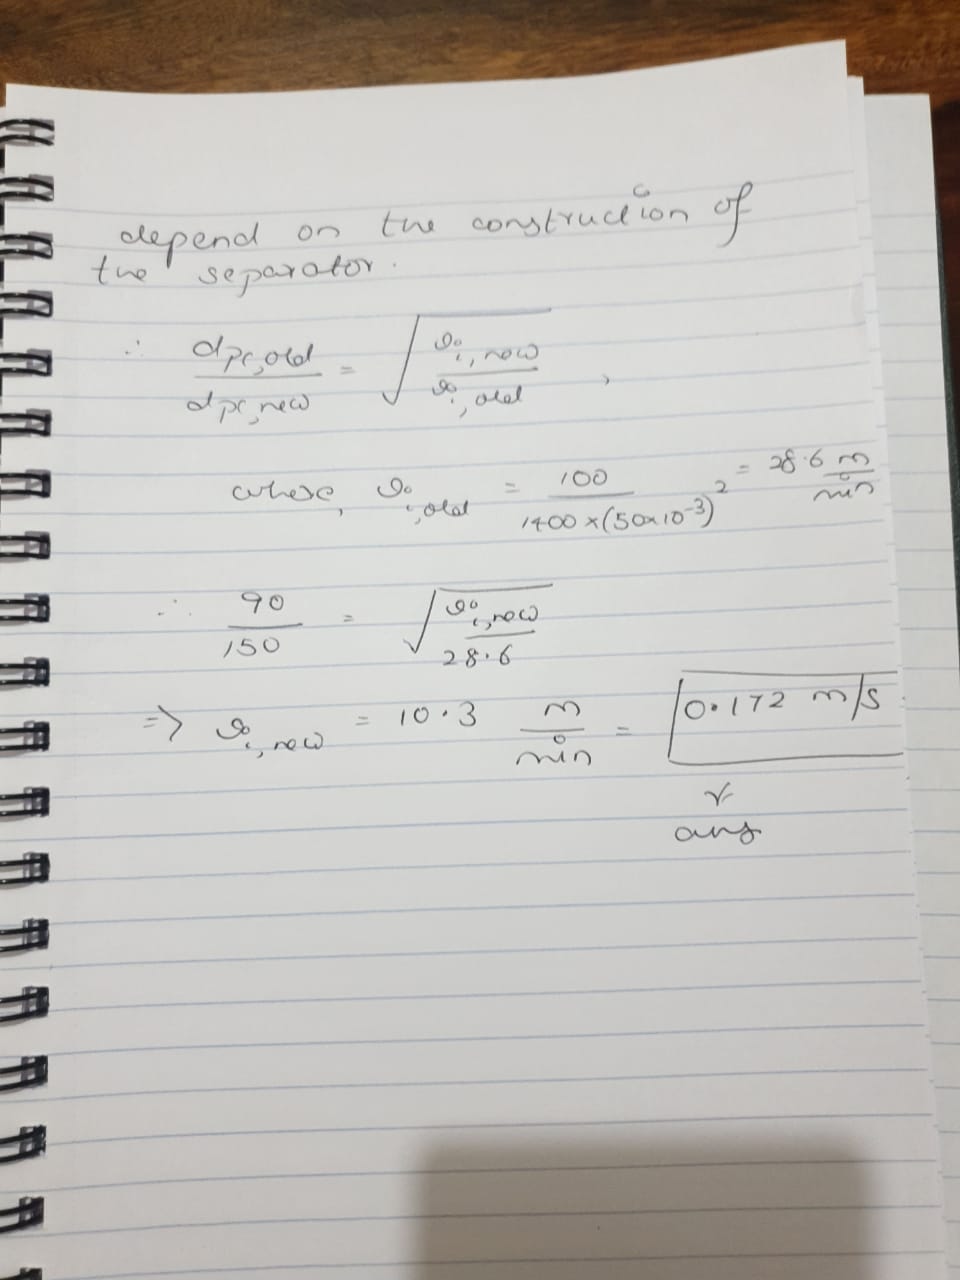 depend on the construction of
the separator.
∴ dpc,old / dpc,new = √(vi,new / vi,old) ,
where, vi,old = 100 / (1400 × (50×10^-3)^2) = 28.6 m/min
∴ 90 / 150 = √(vi,new / 28.6)
=> vi,new = 10.3 m/min = 0.172 m/s
ans